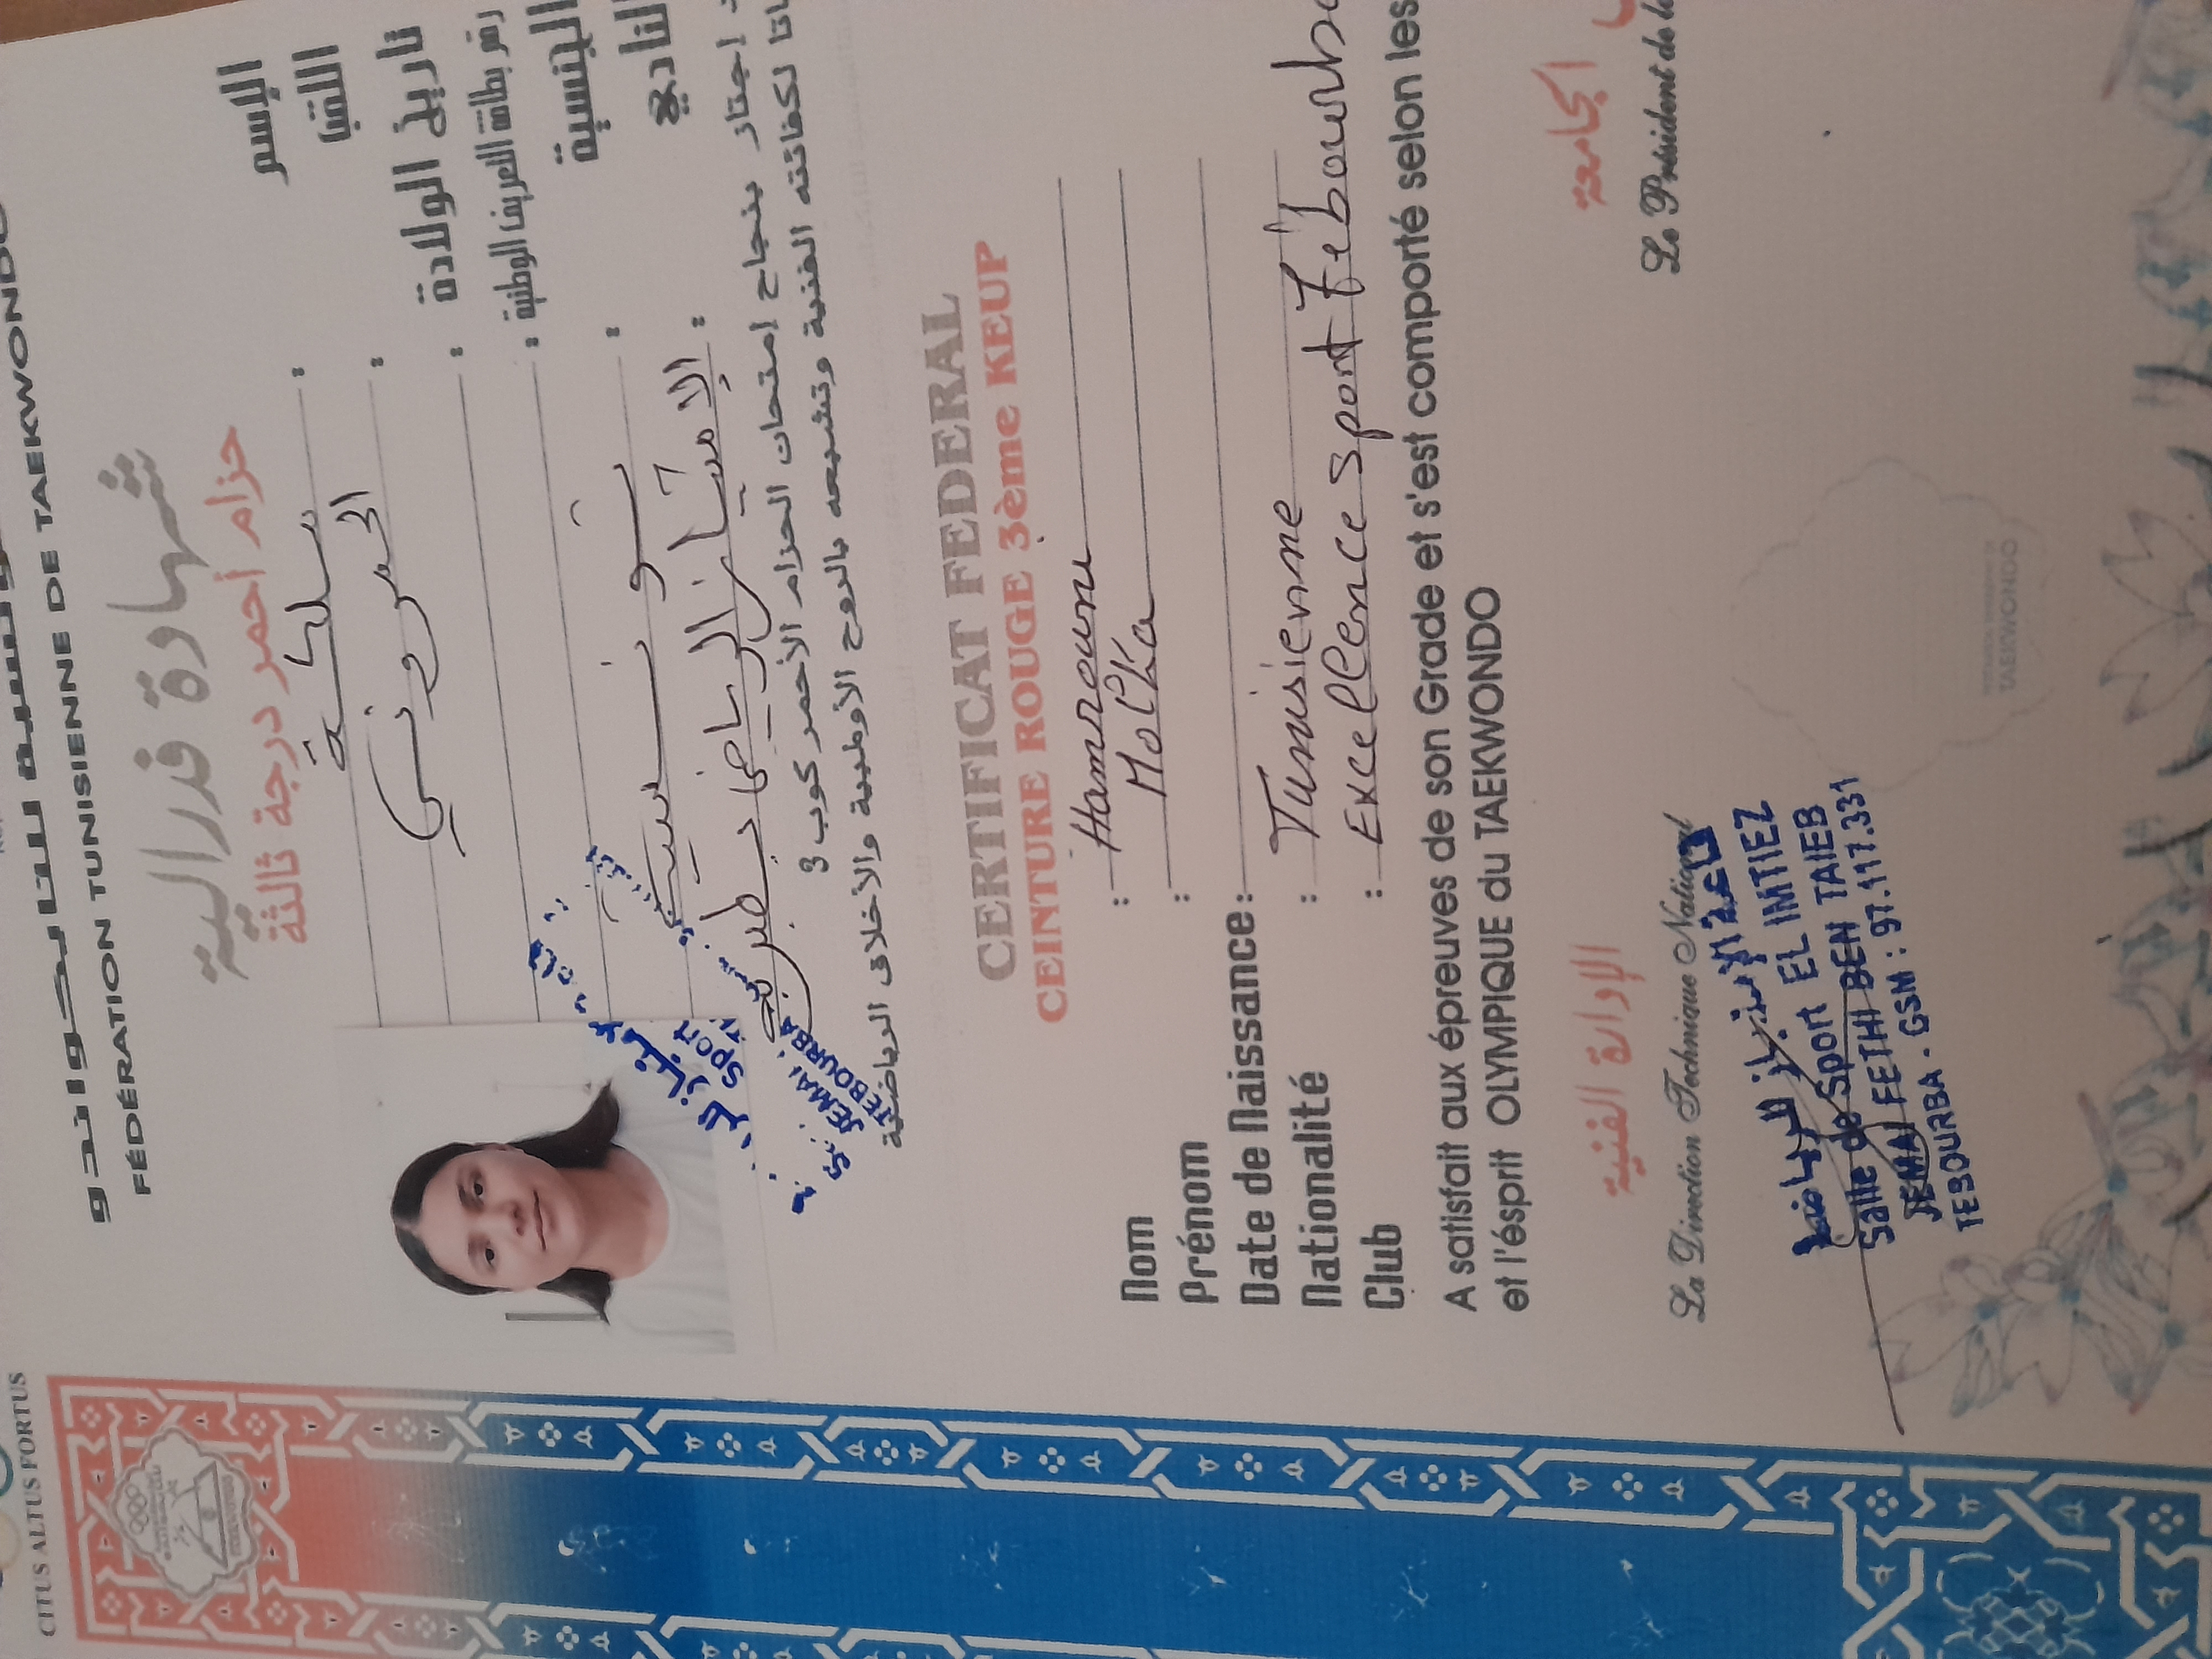 CITUS ALTUS FORTUS
FÉDÉRATION TUNISIENNE DE TAEKWONDO
شهادة فدرالية
حزام أحمر درجة ثالثة
الإسم :
اللقب : الحمروني
تاريخ الولادة :
رقم بطاقة التعريف الوطنية :
الجنسية : تونسية
النادي : الإمتياز الرياضي بطبربة
اجتاز بنجاح إمتحان الحزام الأحمر كوب 3
لكفائته الفنية وتشبعه بالروح الأولمبية والأخلاق الرياضية
Sport
JEMAI
TEBOURBA
CERTIFICAT FEDERAL
CEINTURE ROUGE 3ème KEUP
Nom : Hamrouni
Prénom : Molka
Date de Naissance :
Nationalité : Tunisienne
Club : Excellence sport Tebourba
A satisfait aux épreuves de son Grade et s'est comporté selon les
et l'ésprit OLYMPIQUE du TAEKWONDO
الإدارة الفنية
الجامعة
La Direction Technique National
Le Président de la
Salle de Sport EL IMTIEZ
JEMAI FETHI BEN TAIEB
TEBOURBA . GSM : 97.117.331
TAEKWONDO